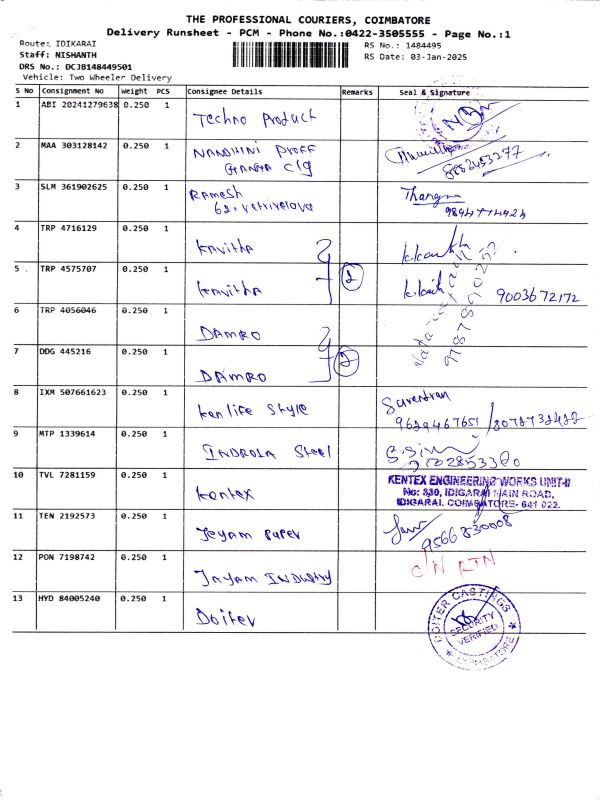 THE PROFESSIONAL COURIERS, COIMBATORE
Delivery Runsheet - PCM - Phone No.:0422-3505555 - Page No.:1
Route: IDIKARAI
RS No.: 1484495
Staff: NISHANTH
RS Date: 03-Jan-2025
DRS No.: DCJB148449501
Vehicle: Two Wheeler Delivery
S No Consignment No Weight PCS Consignee Details Remarks Seal & Signature
1 ABI 20241279638 0.250 1 Techno Product
2 MAA 303128142 0.250 1 NANDHINI PROFF
GANGA clg
8852453277
3 SLM 361902625 0.250 1 RAMESH
62. vetrivelava
Thangm
4 TRP 4716129 0.250 1 KAVITHA
5 TRP 4575707 0.250 1 KAVITHA 2
9003672172
6 TRP 4056046 0.250 1 DAMRO
7 DDG 445216 0.250 1 DAMRO 2
8 IXM 507661623 0.250 1 Ken life Style
Surendran
9629467651
9 MTP 1339614 0.250 1 INDROLA Steel
10 TVL 7281159 0.250 1 Kentex
KENTEX ENGINEERING WORKS UNIT-II
No: 330, IDIGARAI MAIN ROAD,
IDIGARAI. COIMBATORE- 641 022.
11 TEN 2192573 0.250 1 Jeyam Paper
9566830008
12 PON 7198742 0.250 1 Jayam INDUSTRY
C/N RTN
13 HYD 84005240 0.250 1 Doiter
DOITER CASTINGS
SECURITY
VERIFIED
COIMBATORE